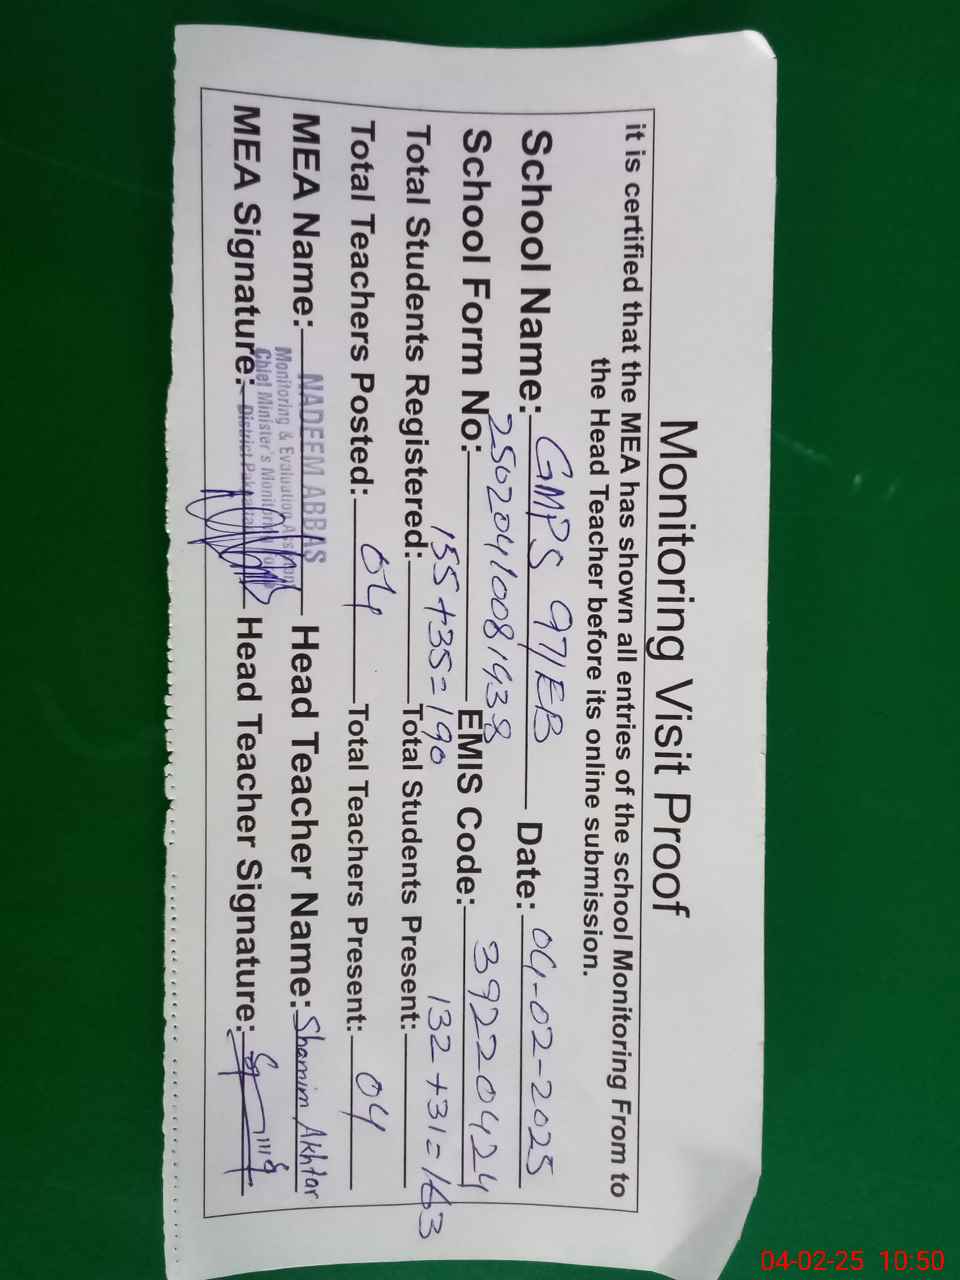 Monitoring Visit Proof
it is certified that the MEA has shown all entries of the school Monitoring From to
the Head Teacher before its online submission.
School Name: GMPS 97/EB Date: 04-02-2025
School Form No: 25020410081938 EMIS Code: 39220424
Total Students Registered: 155+35=190 Total Students Present: 132+31=163
Total Teachers Posted: 04 Total Teachers Present: 04
MEA Name: NADEEM ABBAS Head Teacher Name: Shamim Akhtar
Monitoring & Evaluation
Chief Minister's Monitoring
District
MEA Signature: Head Teacher Signature:
04-02-25 10:50